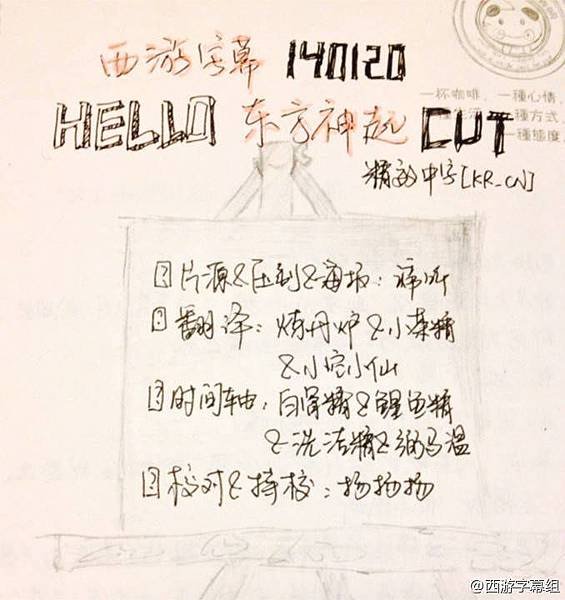 西游字幕 140120
一杯咖啡,一種心情,
種方式,
一種態度
HELLO 东方神起 CUT
精效中字[KR_CN]
片源&压制&海报:
翻译:炼丹炉&小菜精
&小空小仙
时间轴:白骨精&鲤鱼精
&洗洁精&弼马温
校对&特校:扬扬扬
@西游字幕组